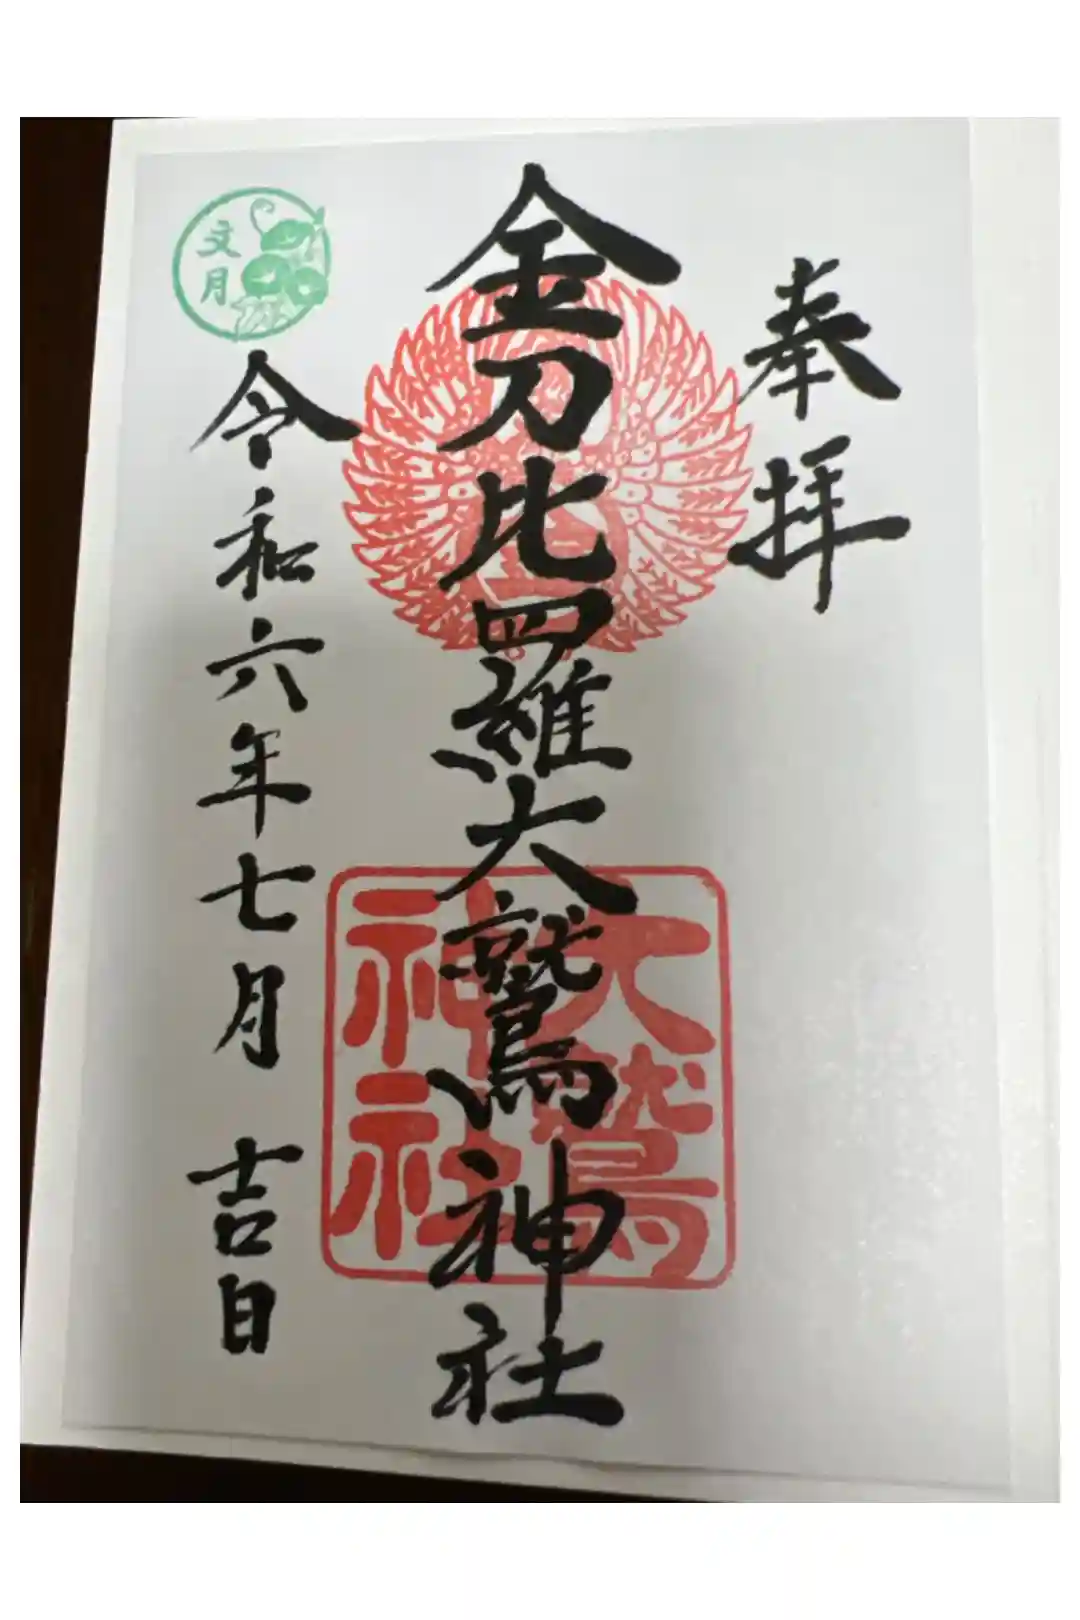 奉拝
金刀比羅大鷲神社
大鷲
神社
文月
令和六年七月 吉日